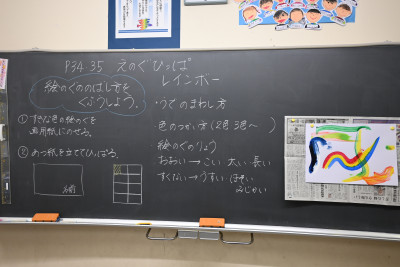 P34.35 えのぐひっぱ
レインボー
絵のぐののばし方を
くふうしよう。
① すきな色の絵のぐを
画用紙にのせる。
② あつ紙を立ててひっぱる。
・うでのまわし方
色のつかい方(2色 3色〜 )
絵のぐのりょう
おおい→こい 太い 長い
すくない→うすい ほそい
みじかい